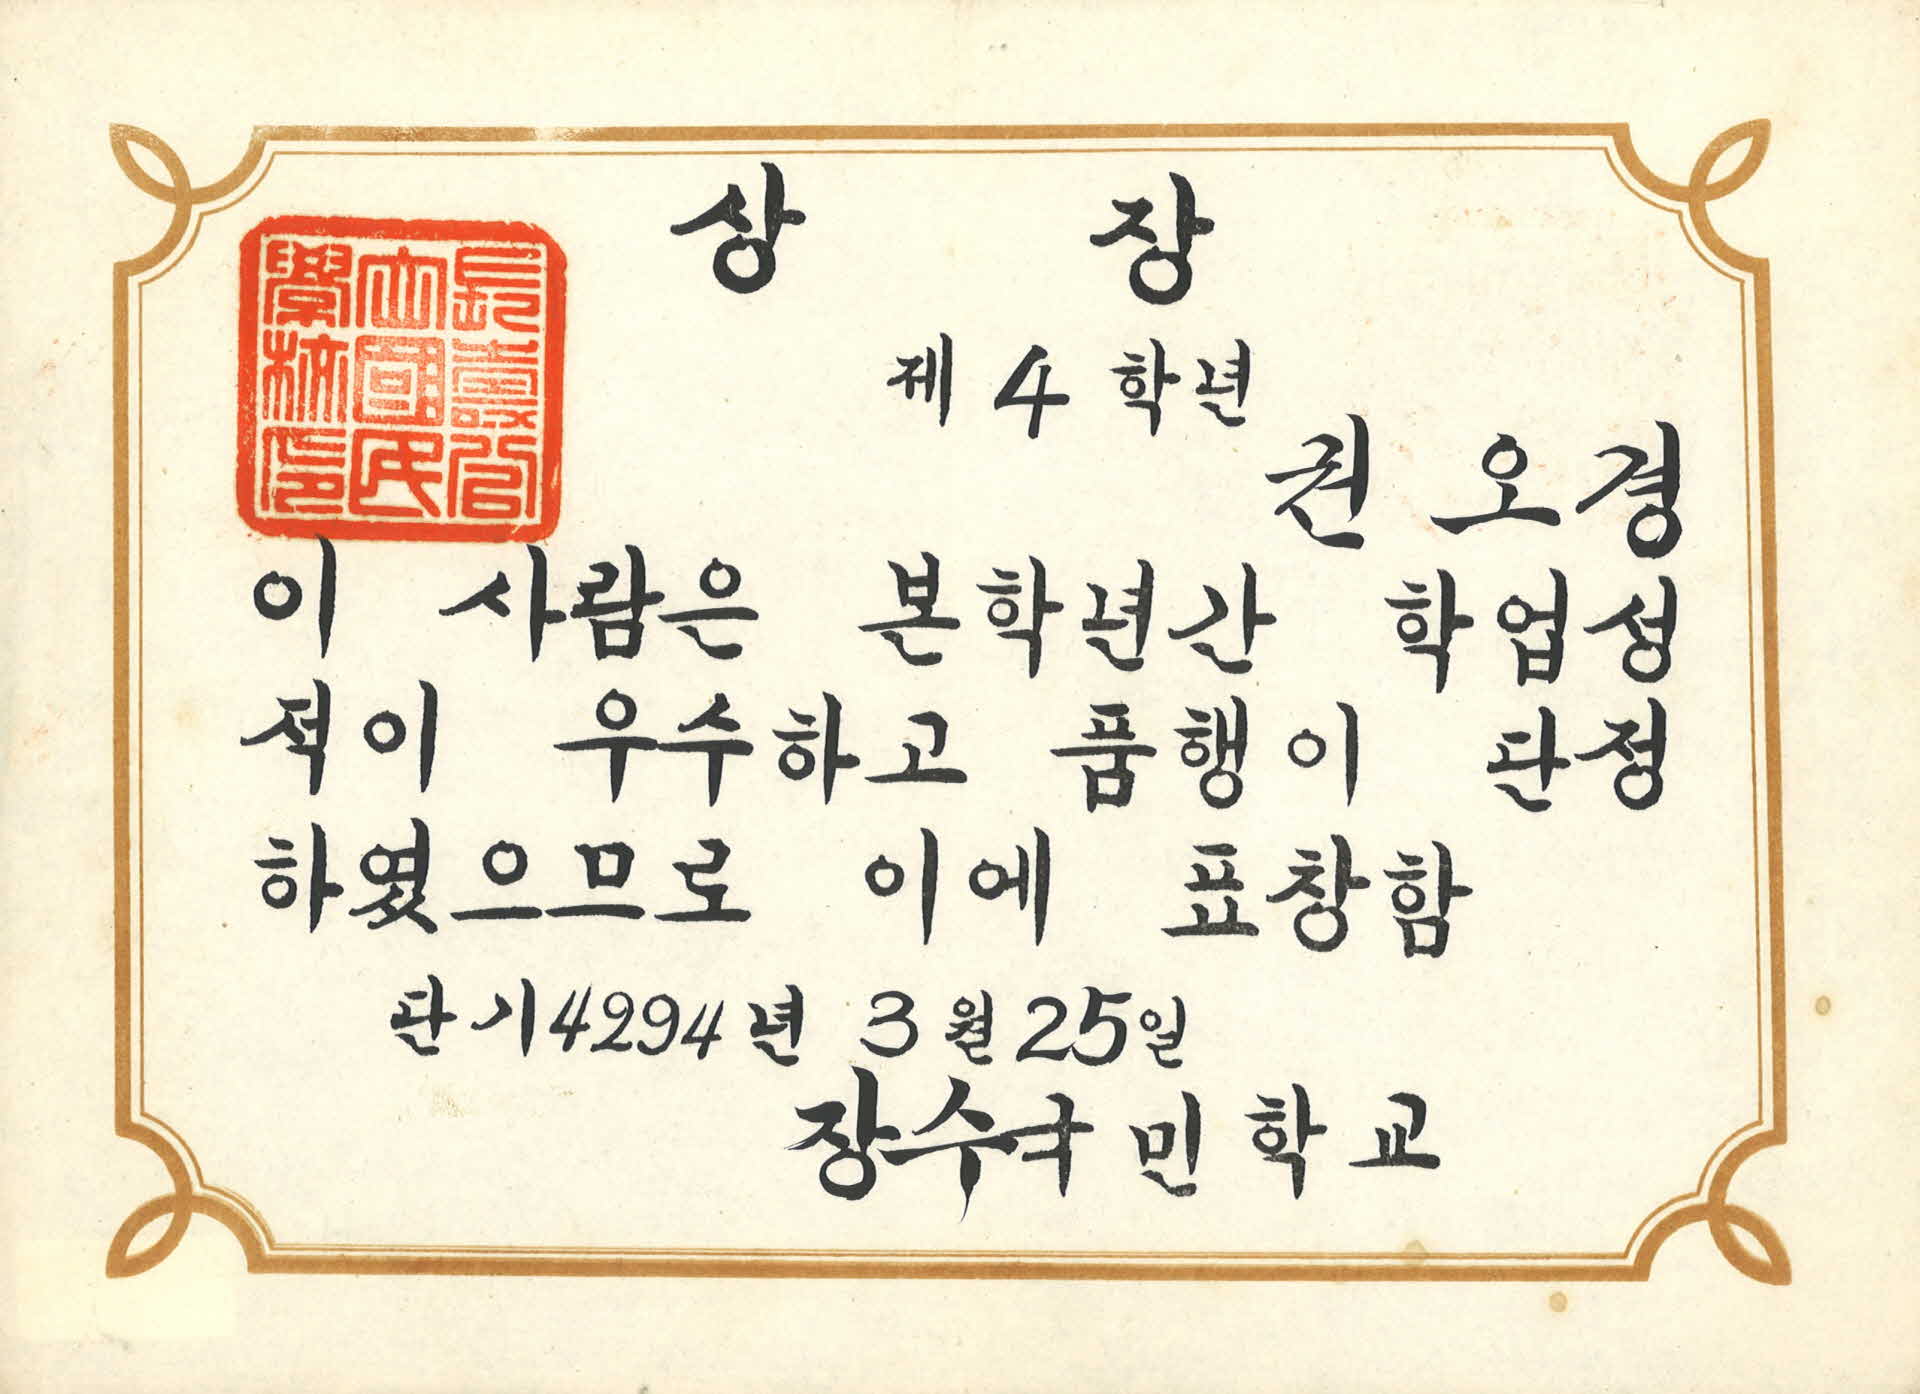 상 장
제 4 학년
권 오 경
이 사람은 본학년간 학업성
적이 우수하고 품행이 단정
하였으므로 이에 표창함
단기 4294년 3월 25일
장수국민학교
長壽公
立國民
學校印